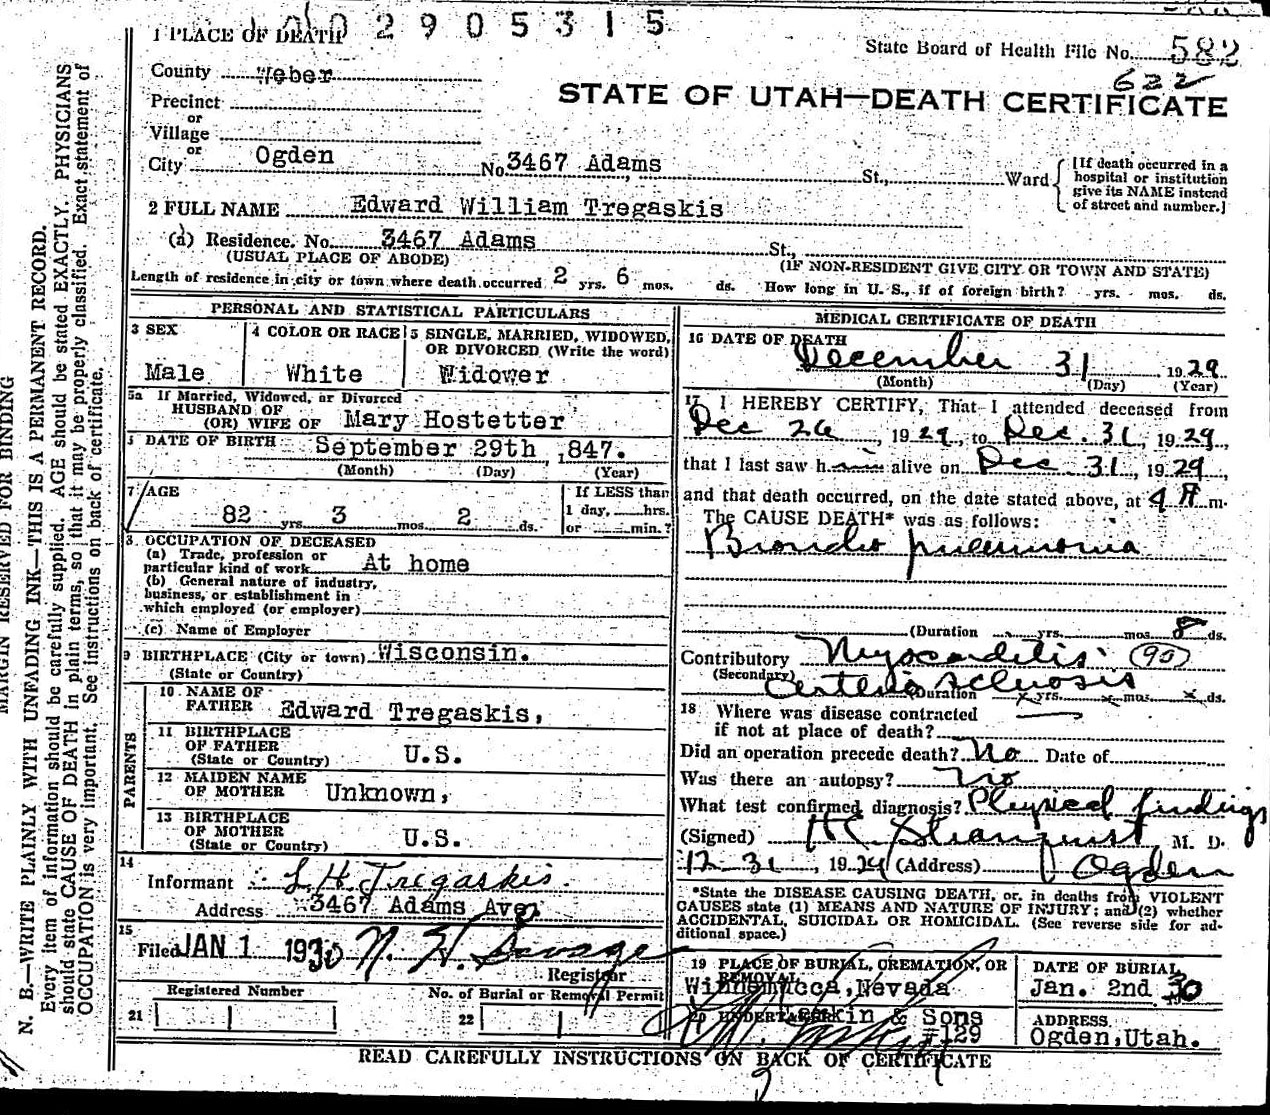 2905315
1 PLACE OF DEATH
State Board of Health File No. 582
622
County Weber
STATE OF UTAH—DEATH CERTIFICATE
Precinct
or
Village
or
City Ogden No. 3467 Adams St., Ward
[If death occurred in a
hospital or institution
give its NAME instead
of street and number.]
2 FULL NAME Edward William Tregaskis
(a) Residence. No. 3467 Adams St.,
(USUAL PLACE OF ABODE) (IF NON-RESIDENT GIVE CITY OR TOWN AND STATE)
Length of residence in city or town where death occurred 2 yrs. 6 mos. ds. How long in U. S., if of foreign birth? yrs. mos. ds.
PERSONAL AND STATISTICAL PARTICULARS
3 SEX
Male
4 COLOR OR RACE
White
5 SINGLE, MARRIED, WIDOWED,
OR DIVORCED (Write the word)
Widower
5a If Married, Widowed, or Divorced
HUSBAND OF
(OR) WIFE OF Mary Hostetter
DATE OF BIRTH September 29th, 1847.
(Month) (Day) (Year)
7 AGE
82 yrs. 3 mos. 2 ds.
If LESS than
1 day, hrs.
or min.?
8. OCCUPATION OF DECEASED
(a) Trade, profession or
particular kind of work At home
(b) General nature of industry,
business, or establishment in
which employed (or employer)
(c) Name of Employer
9 BIRTHPLACE (City or town) Wisconsin.
(State or Country)
PARENTS
10 NAME OF
FATHER Edward Tregaskis,
11 BIRTHPLACE
OF FATHER
(State or Country) U.S.
12 MAIDEN NAME
OF MOTHER Unknown,
13 BIRTHPLACE
OF MOTHER
(State or Country) U.S.
14
Informant L H Tregaskis.
Address 3467 Adams Ave.
15
Filed JAN 1 1930 N. H. Savage
Registrar
Registered Number
21
No. of Burial or Removal Permit
22
MEDICAL CERTIFICATE OF DEATH
16 DATE OF DEATH
December 31 1929
(Month) (Day) (Year)
17 I HEREBY CERTIFY, That I attended deceased from
Dec 26, 1929, to Dec. 31, 1929,
that I last saw him alive on Dec 31, 1929,
and that death occurred, on the date stated above, at 9 A m.
The CAUSE DEATH* was as follows:
Broncho pneumonia
(Duration yrs. mos. 8 ds.
Contributory Myocarditis (90)
(Secondary) Arteriosclerosis
(Duration x yrs. x mos. x ds.
18 Where was disease contracted
if not at place of death?
Did an operation precede death? No Date of
Was there an autopsy? No
What test confirmed diagnosis? Physical findings
(Signed) H C Stranquist, M. D.
12-31, 1929 (Address) Ogden
*State the DISEASE CAUSING DEATH, or, in deaths from VIOLENT
CAUSES state (1) MEANS AND NATURE OF INJURY; and (2) whether
ACCIDENTAL, SUICIDAL OR HOMICIDAL. (See reverse side for ad-
ditional space.)
19 PLACE OF BURIAL, CREMATION, OR
REMOVAL
Winnemucca, Nevada
DATE OF BURIAL
Jan. 2nd 30
20 UNDERTAKER
& Sons
#129
ADDRESS
Ogden, Utah.
READ CAREFULLY INSTRUCTIONS ON BACK OF CERTIFICATE
MARGIN RESERVED FOR BINDING
N. B.—WRITE PLAINLY WITH UNFADING INK—THIS IS A PERMANENT RECORD.
Every item of information should be carefully supplied. AGE should be stated EXACTLY. PHYSICIANS
should state CAUSE OF DEATH in plain terms, so that it may be properly classified. Exact statement of
OCCUPATION is very important. See instructions on back of certificate.